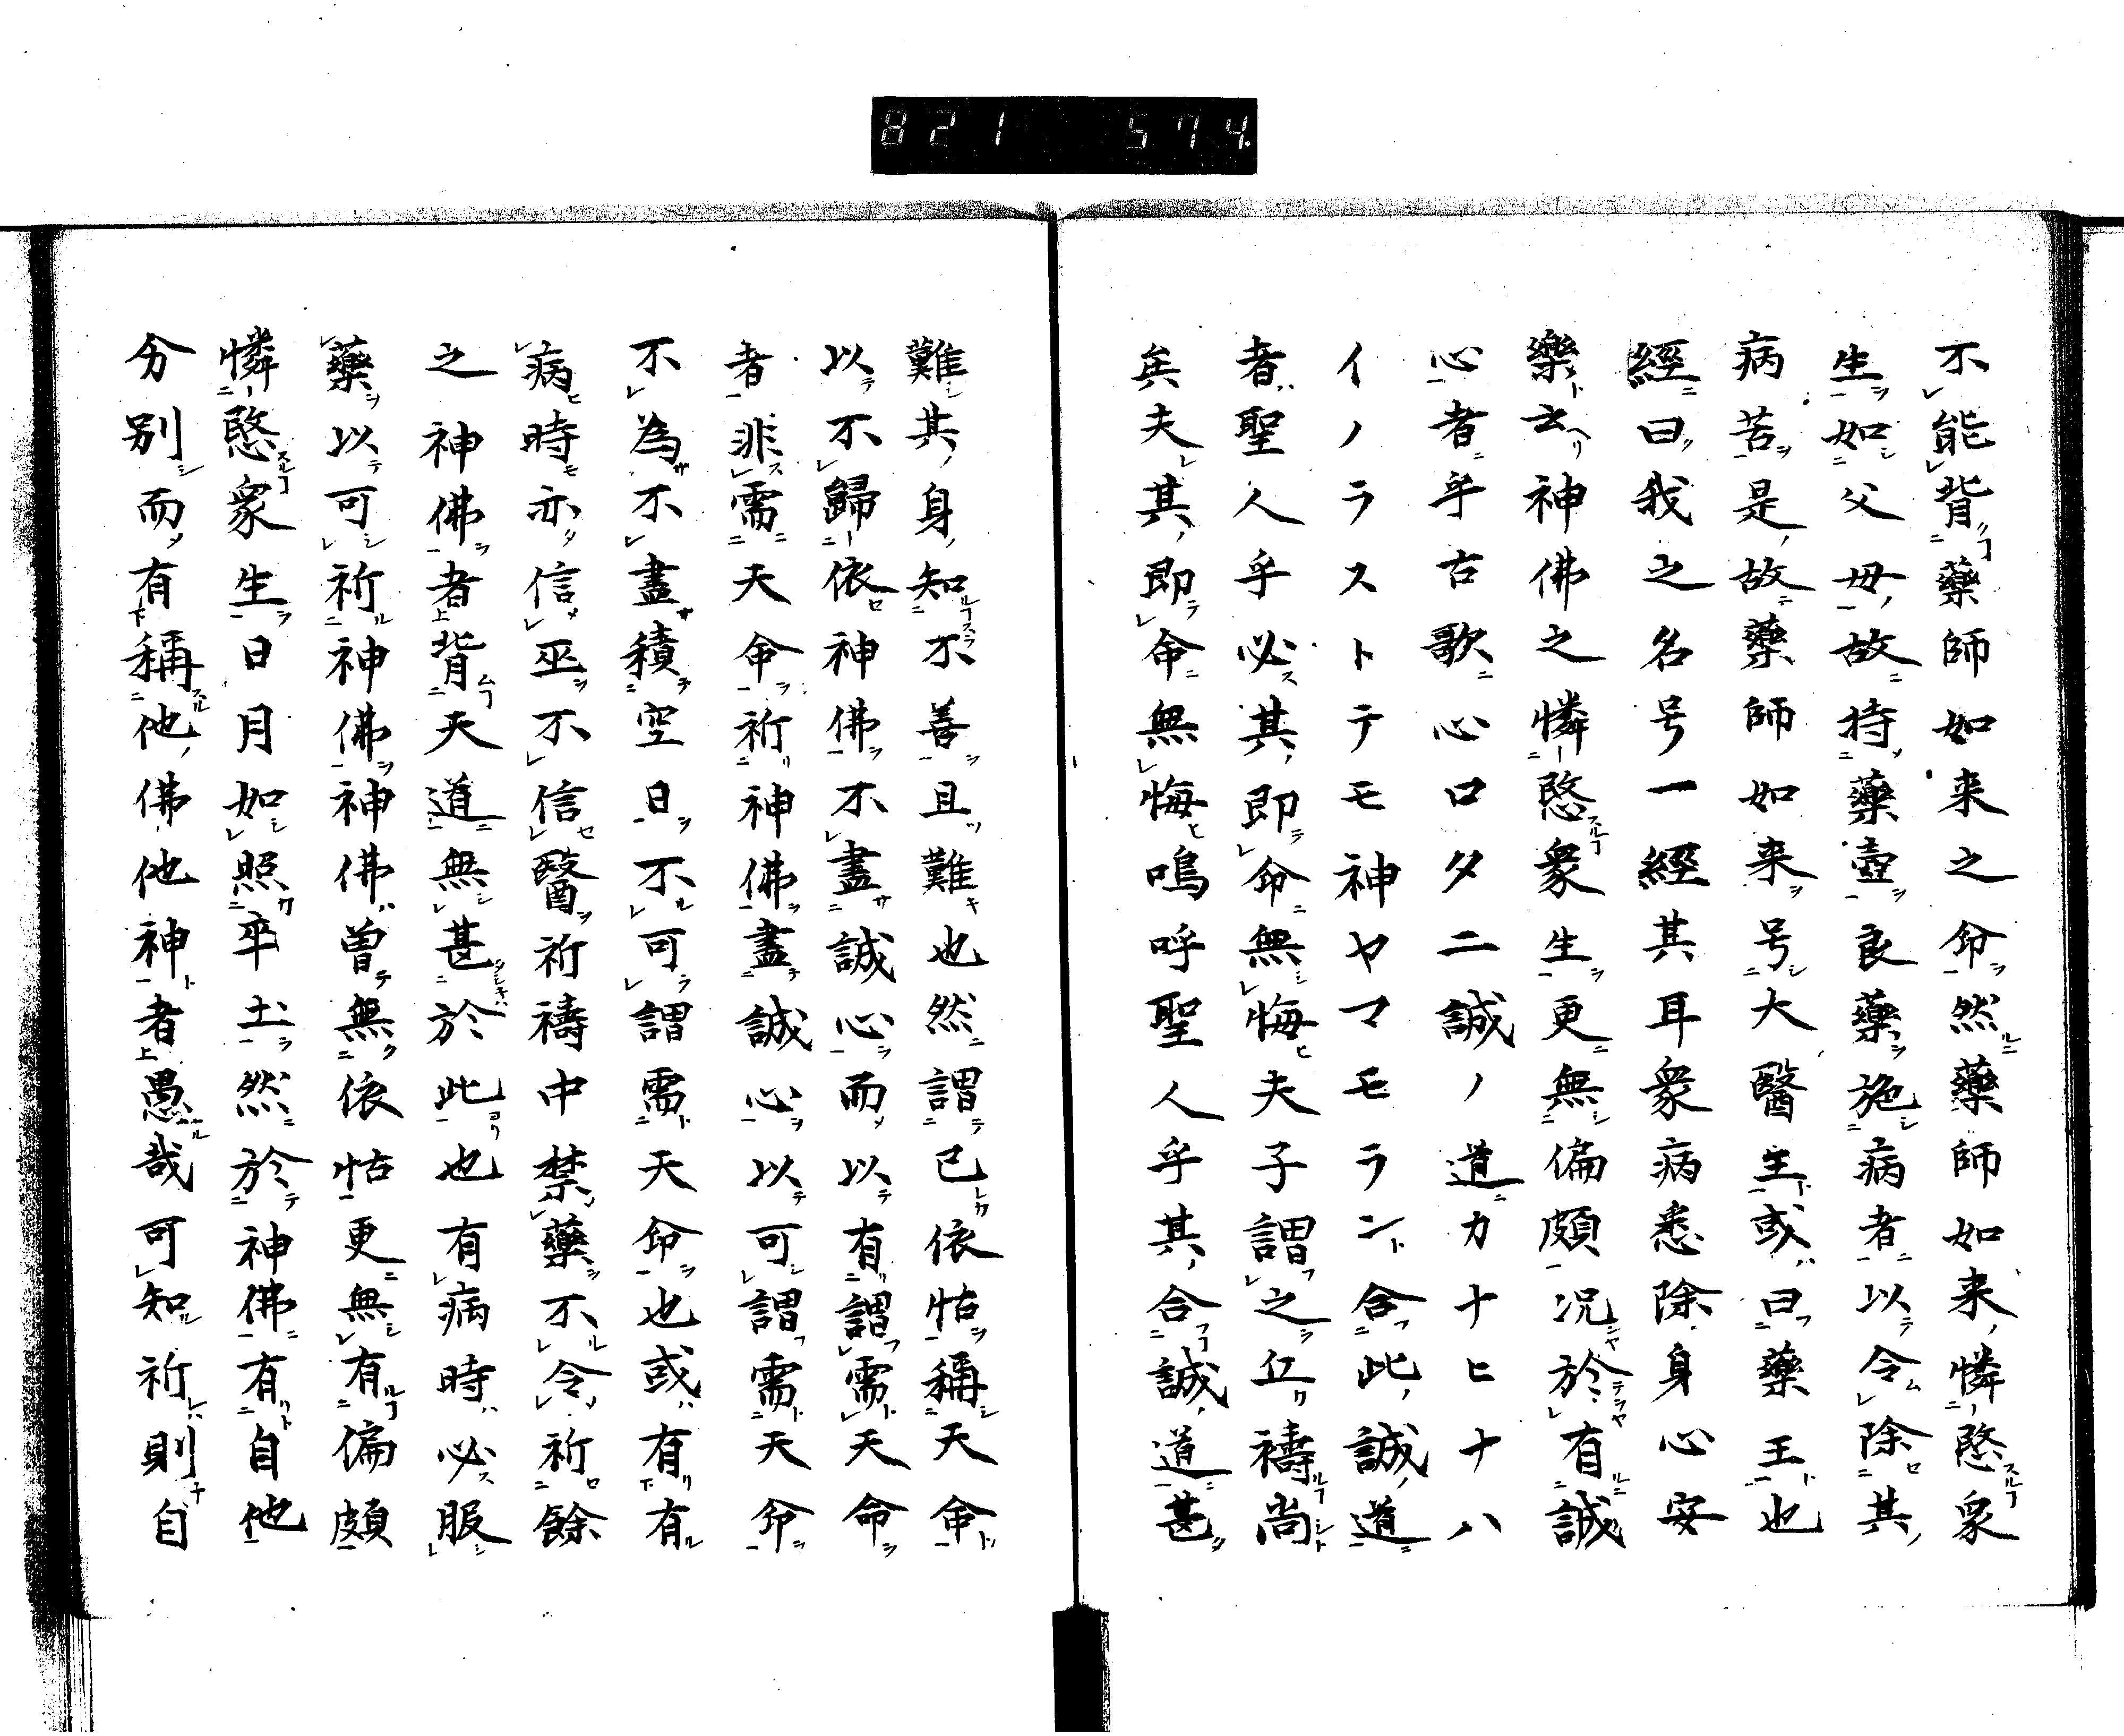 821 574.
不能背藥師如来之命然藥師如来憐愍衆
生如父母故持藥壺良藥施病者以令除其
病苦是故藥師如来号大醫王或曰藥王也
經曰我之名号一經其耳衆病悉除身心安
樂云神佛之憐愍衆生更無偏頗况於有誠
心者乎古歌心ロタニ誠ノ道カナヒナハ
イノラストテモ神ヤマモラン合此誠道
者聖人乎必其即命無悔夫子謂之丘禱尚
矣夫其即命無悔嗚呼聖人乎其合誠道甚
難其身知不善且難也然謂已依怙稱天命
以不歸依神佛不盡誠心而以有謂需天命
者非需天命祈神佛盡誠心以可謂需天命
不為不盡積空日不可謂需天命也或有有
病時亦信巫不信醫祈禱中禁藥不令祈餘
之神佛者背天道無甚於此也有病時必服
藥以可祈神佛神佛曽無依怙更無有偏頗
憐愍衆生日月如照卒土然於神佛有自他
分别而有稱他佛他神者愚哉可知祈則自